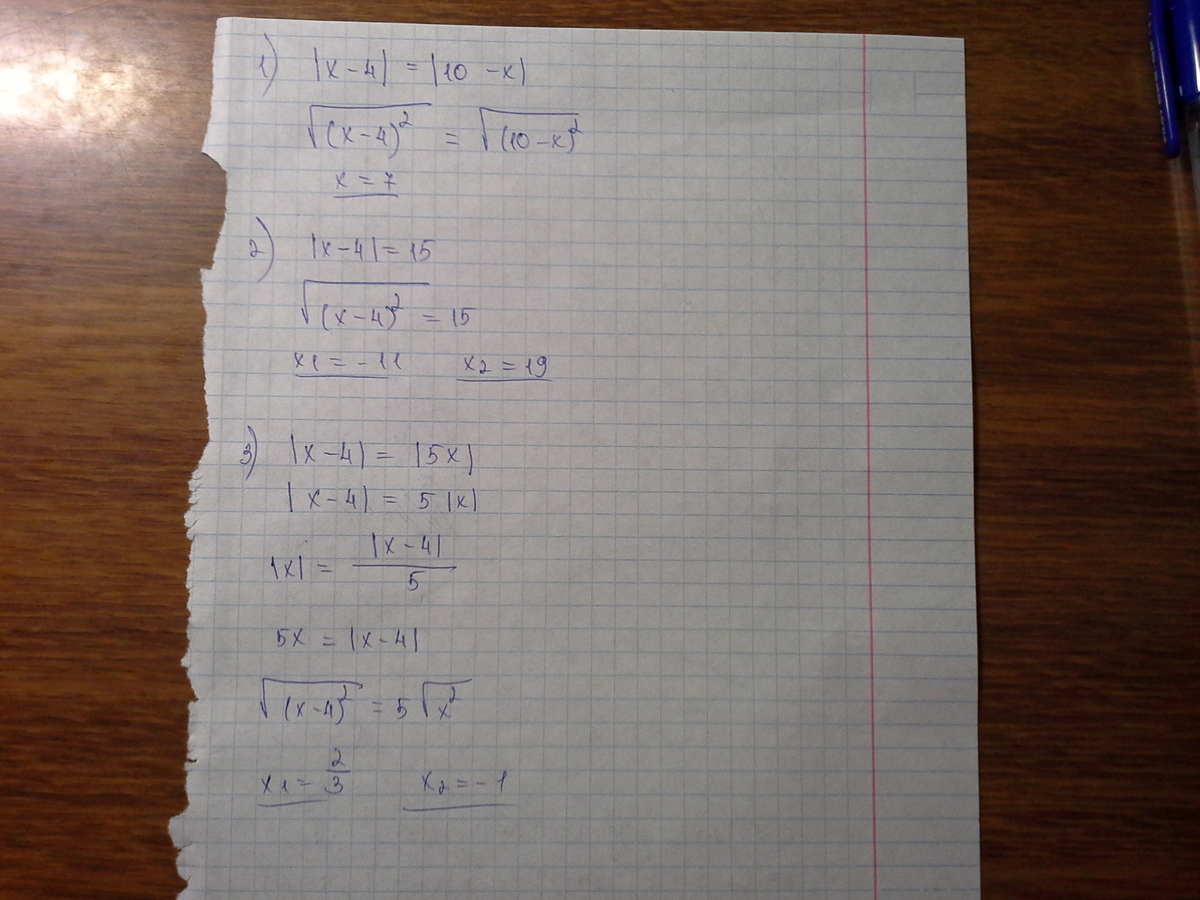 1) |x-4| = |10-x|
√(x-4)² = √(10-x)²
x = 7
2) |x-4| = 15
√(x-4)² = 15
x1 = -11 x2 = 19
3) |x-4| = |5x|
|x-4| = 5|x|
|x| = |x-4|/5
5x = |x-4|
√(x-4)² = 5√x²
x1 = 2/3 x2 = -1